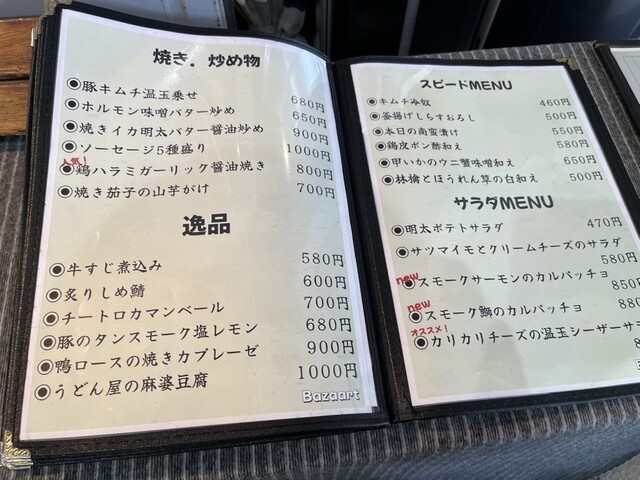 焼き．炒め物
◉豚キムチ温玉乗せ 680円
◉ホルモン味噌バター炒め 650円
◉焼きイカ明太バター醤油炒め 900円
◉ソーセージ5種盛り 1000円
人気！
◉鶏ハラミガーリック醤油焼き 800円
◉焼き茄子の山芋がけ 700円
逸品
◉牛すじ煮込み 580円
◉炙りしめ鯖 600円
◉チートロカマンベール 700円
◉豚のタンスモーク塩レモン 680円
◉鴨ロースの焼きカプレーゼ 900円
◉うどん屋の麻婆豆腐 1000円
Bazaart
スピードMENU
◉キムチ冷奴 460円
◉釜揚げしらすおろし 500円
◉本日の南蛮漬け 550円
◉鶏皮ポン酢和え 580円
◉甲いかのウニ蟹味噌和え 650円
◉林檎とほうれん草の白和え 500円
サラダMENU
◉明太ポテトサラダ 470円
◉サツマイモとクリームチーズのサラダ
580円
new
◉スモークサーモンのカルパッチョ
850円
new
◉スモーク鰤のカルパッチョ 880
オススメ！
◉カリカリチーズの温玉シーザーサ